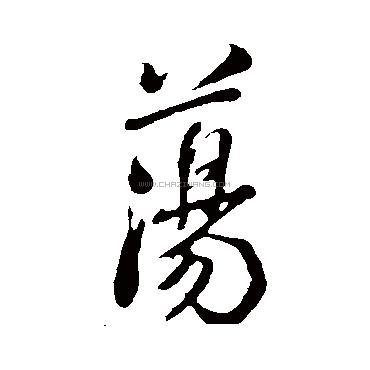 蕩
WWW.CHAZIWANG.COM